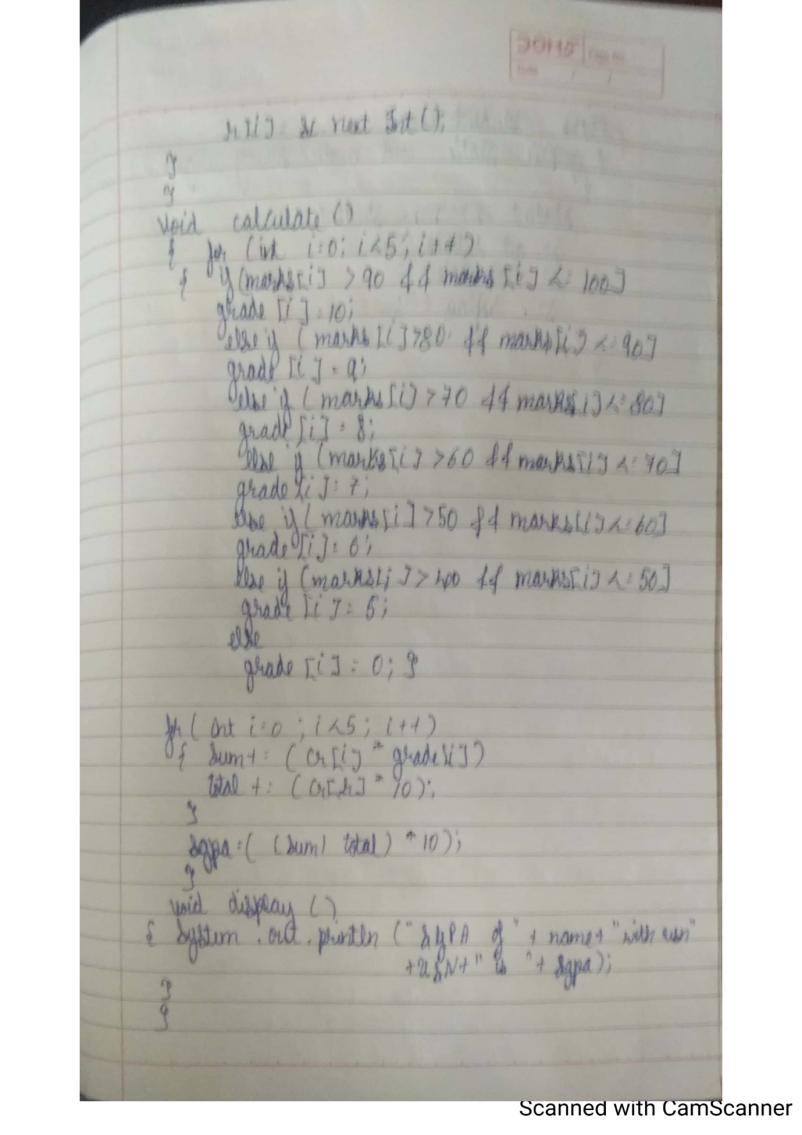 r[i] = sc.nextInt();
}
}
void calculate ()
{ for (int i=0; i<5; i++)
{ if (marks[i] >90 && marks[i] <= 100]
grade [i] = 10;
else if (marks [i] >80 && marks[i] <= 90]
grade [i] = 9;
else if (marks[i] >70 && marks[i] <= 80]
grade [i] = 8;
else if (marks[i] >60 && marks[i] <= 70]
grade [i] = 7;
else if (marks[i] >50 && marks[i] <= 60]
grade [i] = 6;
else if (marks[i] > 400 && marks[i] <= 50]
grade [i] = 5;
else
grade [i] = 0; }
for ( int i=0 ; i<5 ; i++)
{ sum += (cr[i] * grade[i])
total += (cr[i] * 10);
}
sgpa = ( (sum / total) * 10);
}
void display ()
{ System .out. println (" SGPA of " + name + "with usn"
+ USN + " is " + sgpa);
}
}
Scanned with CamScanner